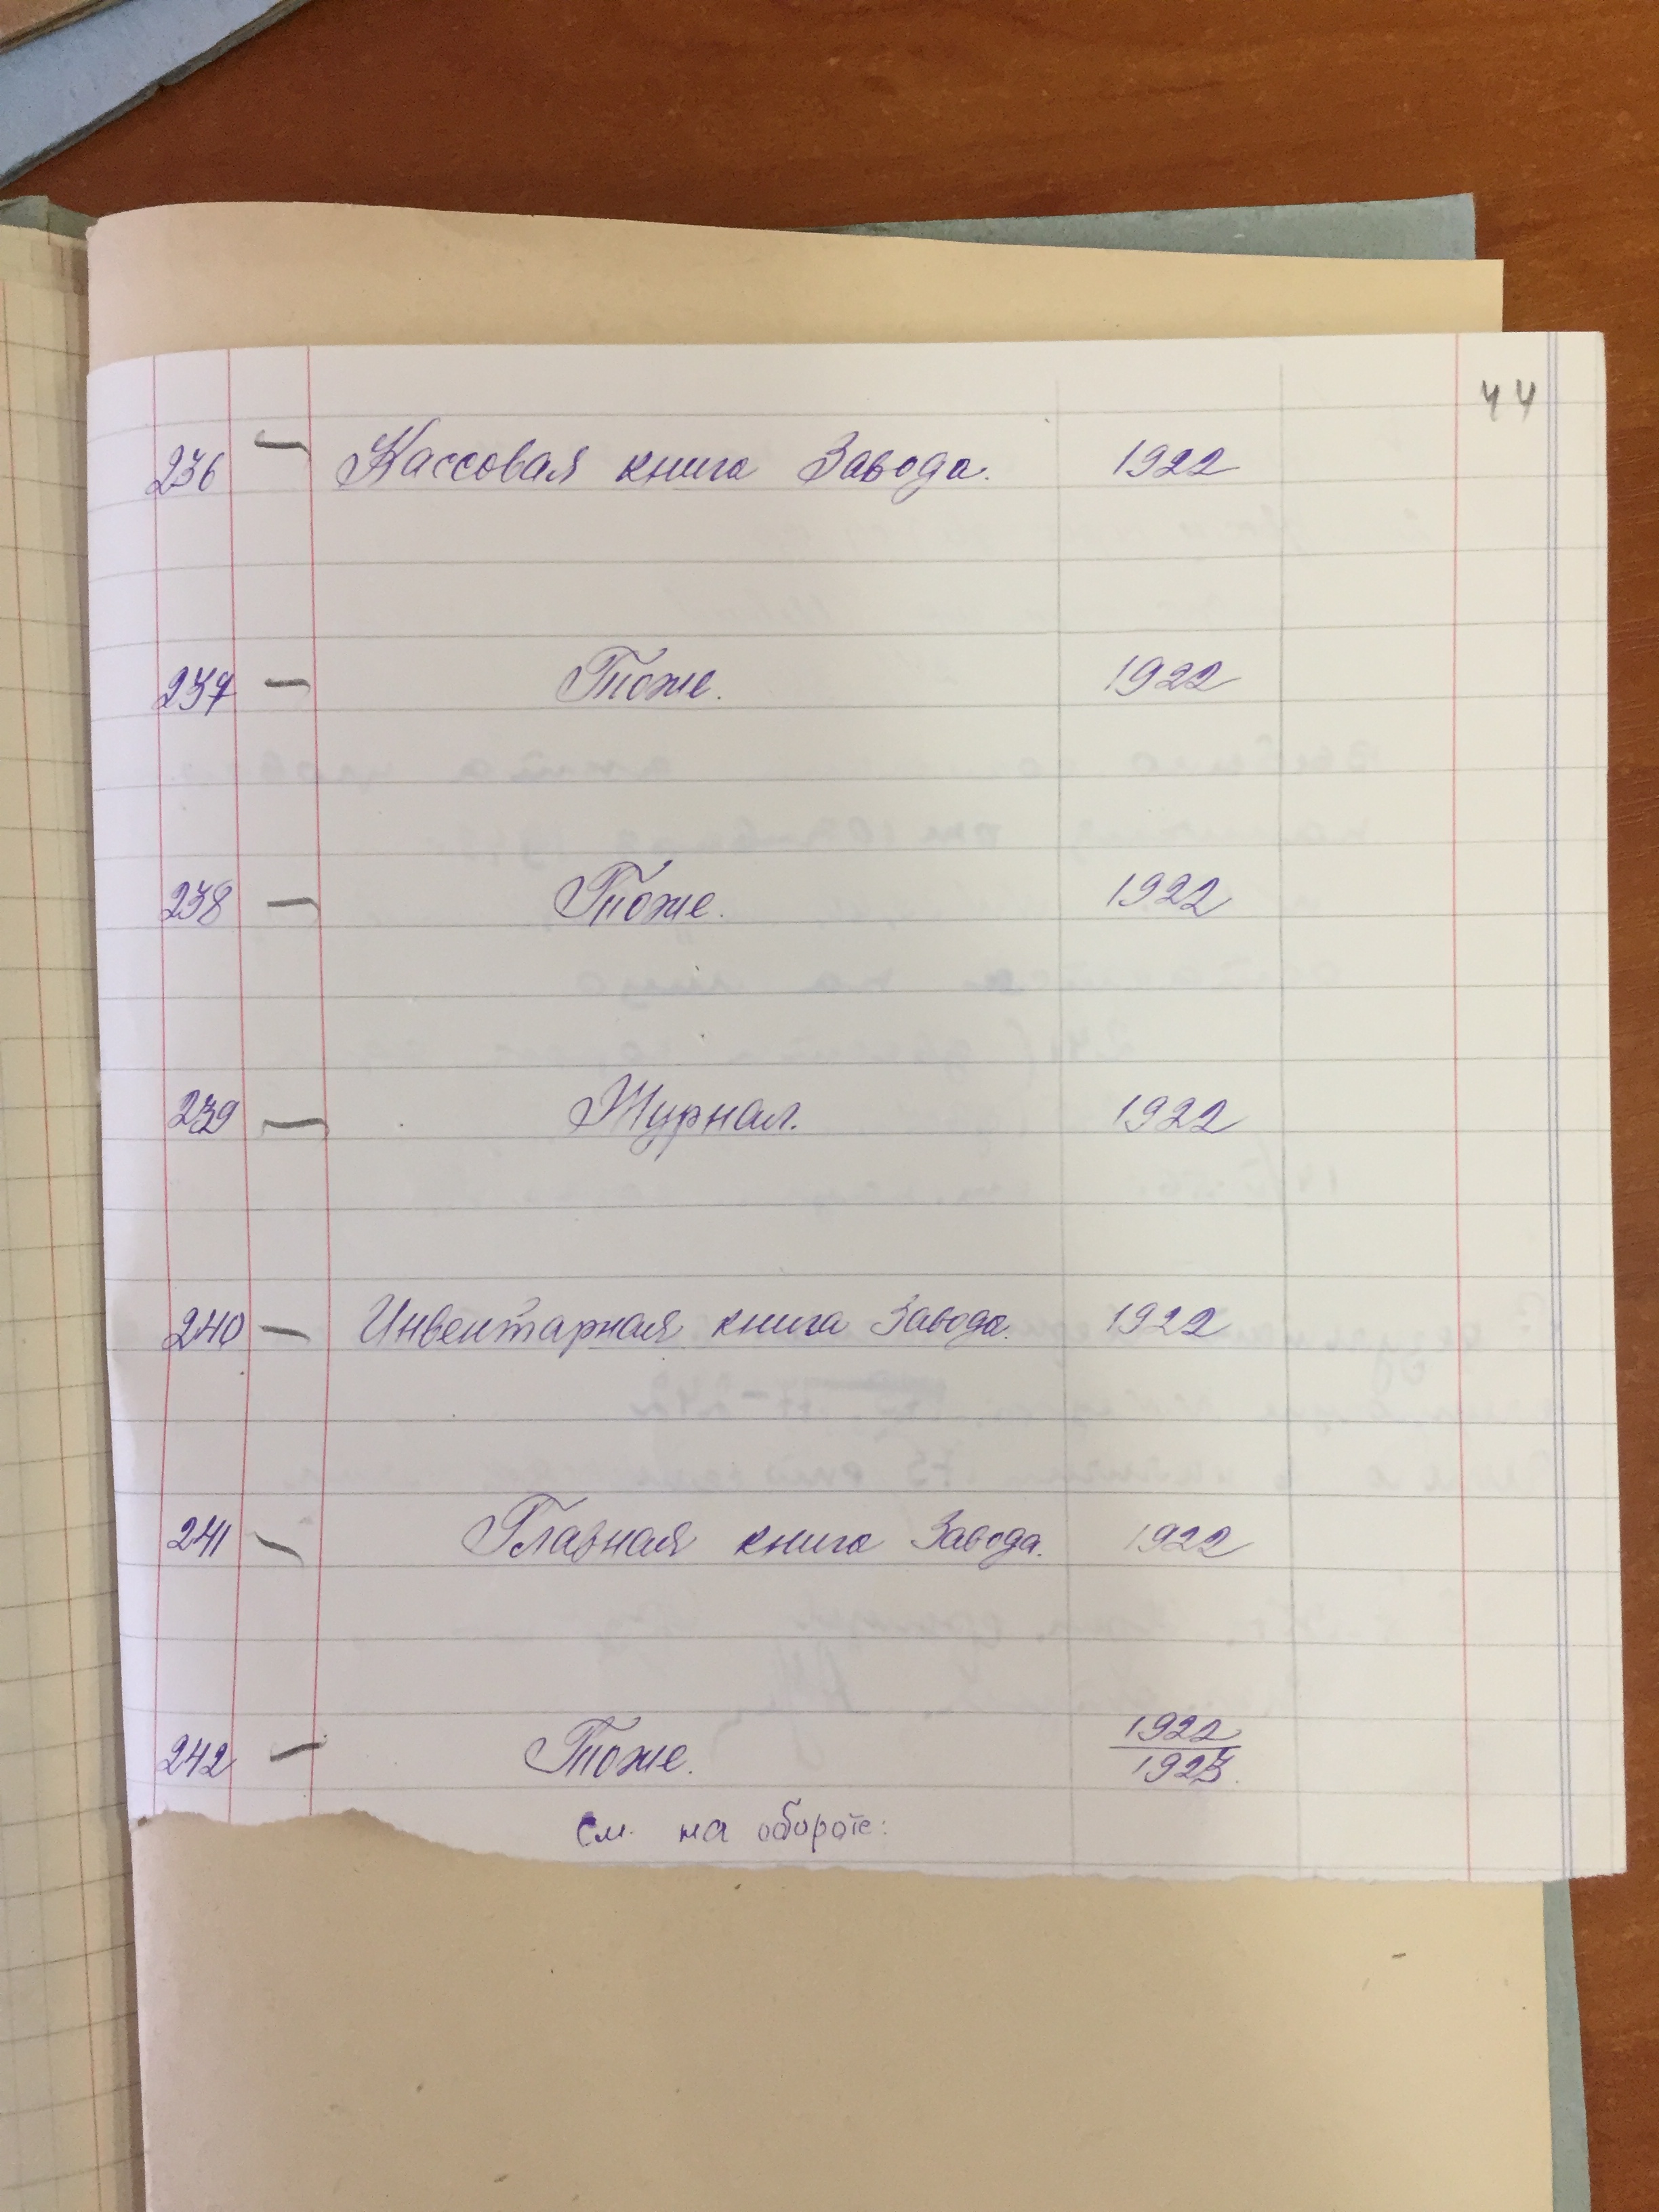 44
236 — Кассовая книга Завода. 1922
237 — Тоже. 1922
238 — Тоже. 1922
239 — Журнал. 1922
240 — Инвентарная книга Завода. 1922
241 — Главная книга Завода. 1922
242 — Тоже. 1922
1923.
См. на обороте: